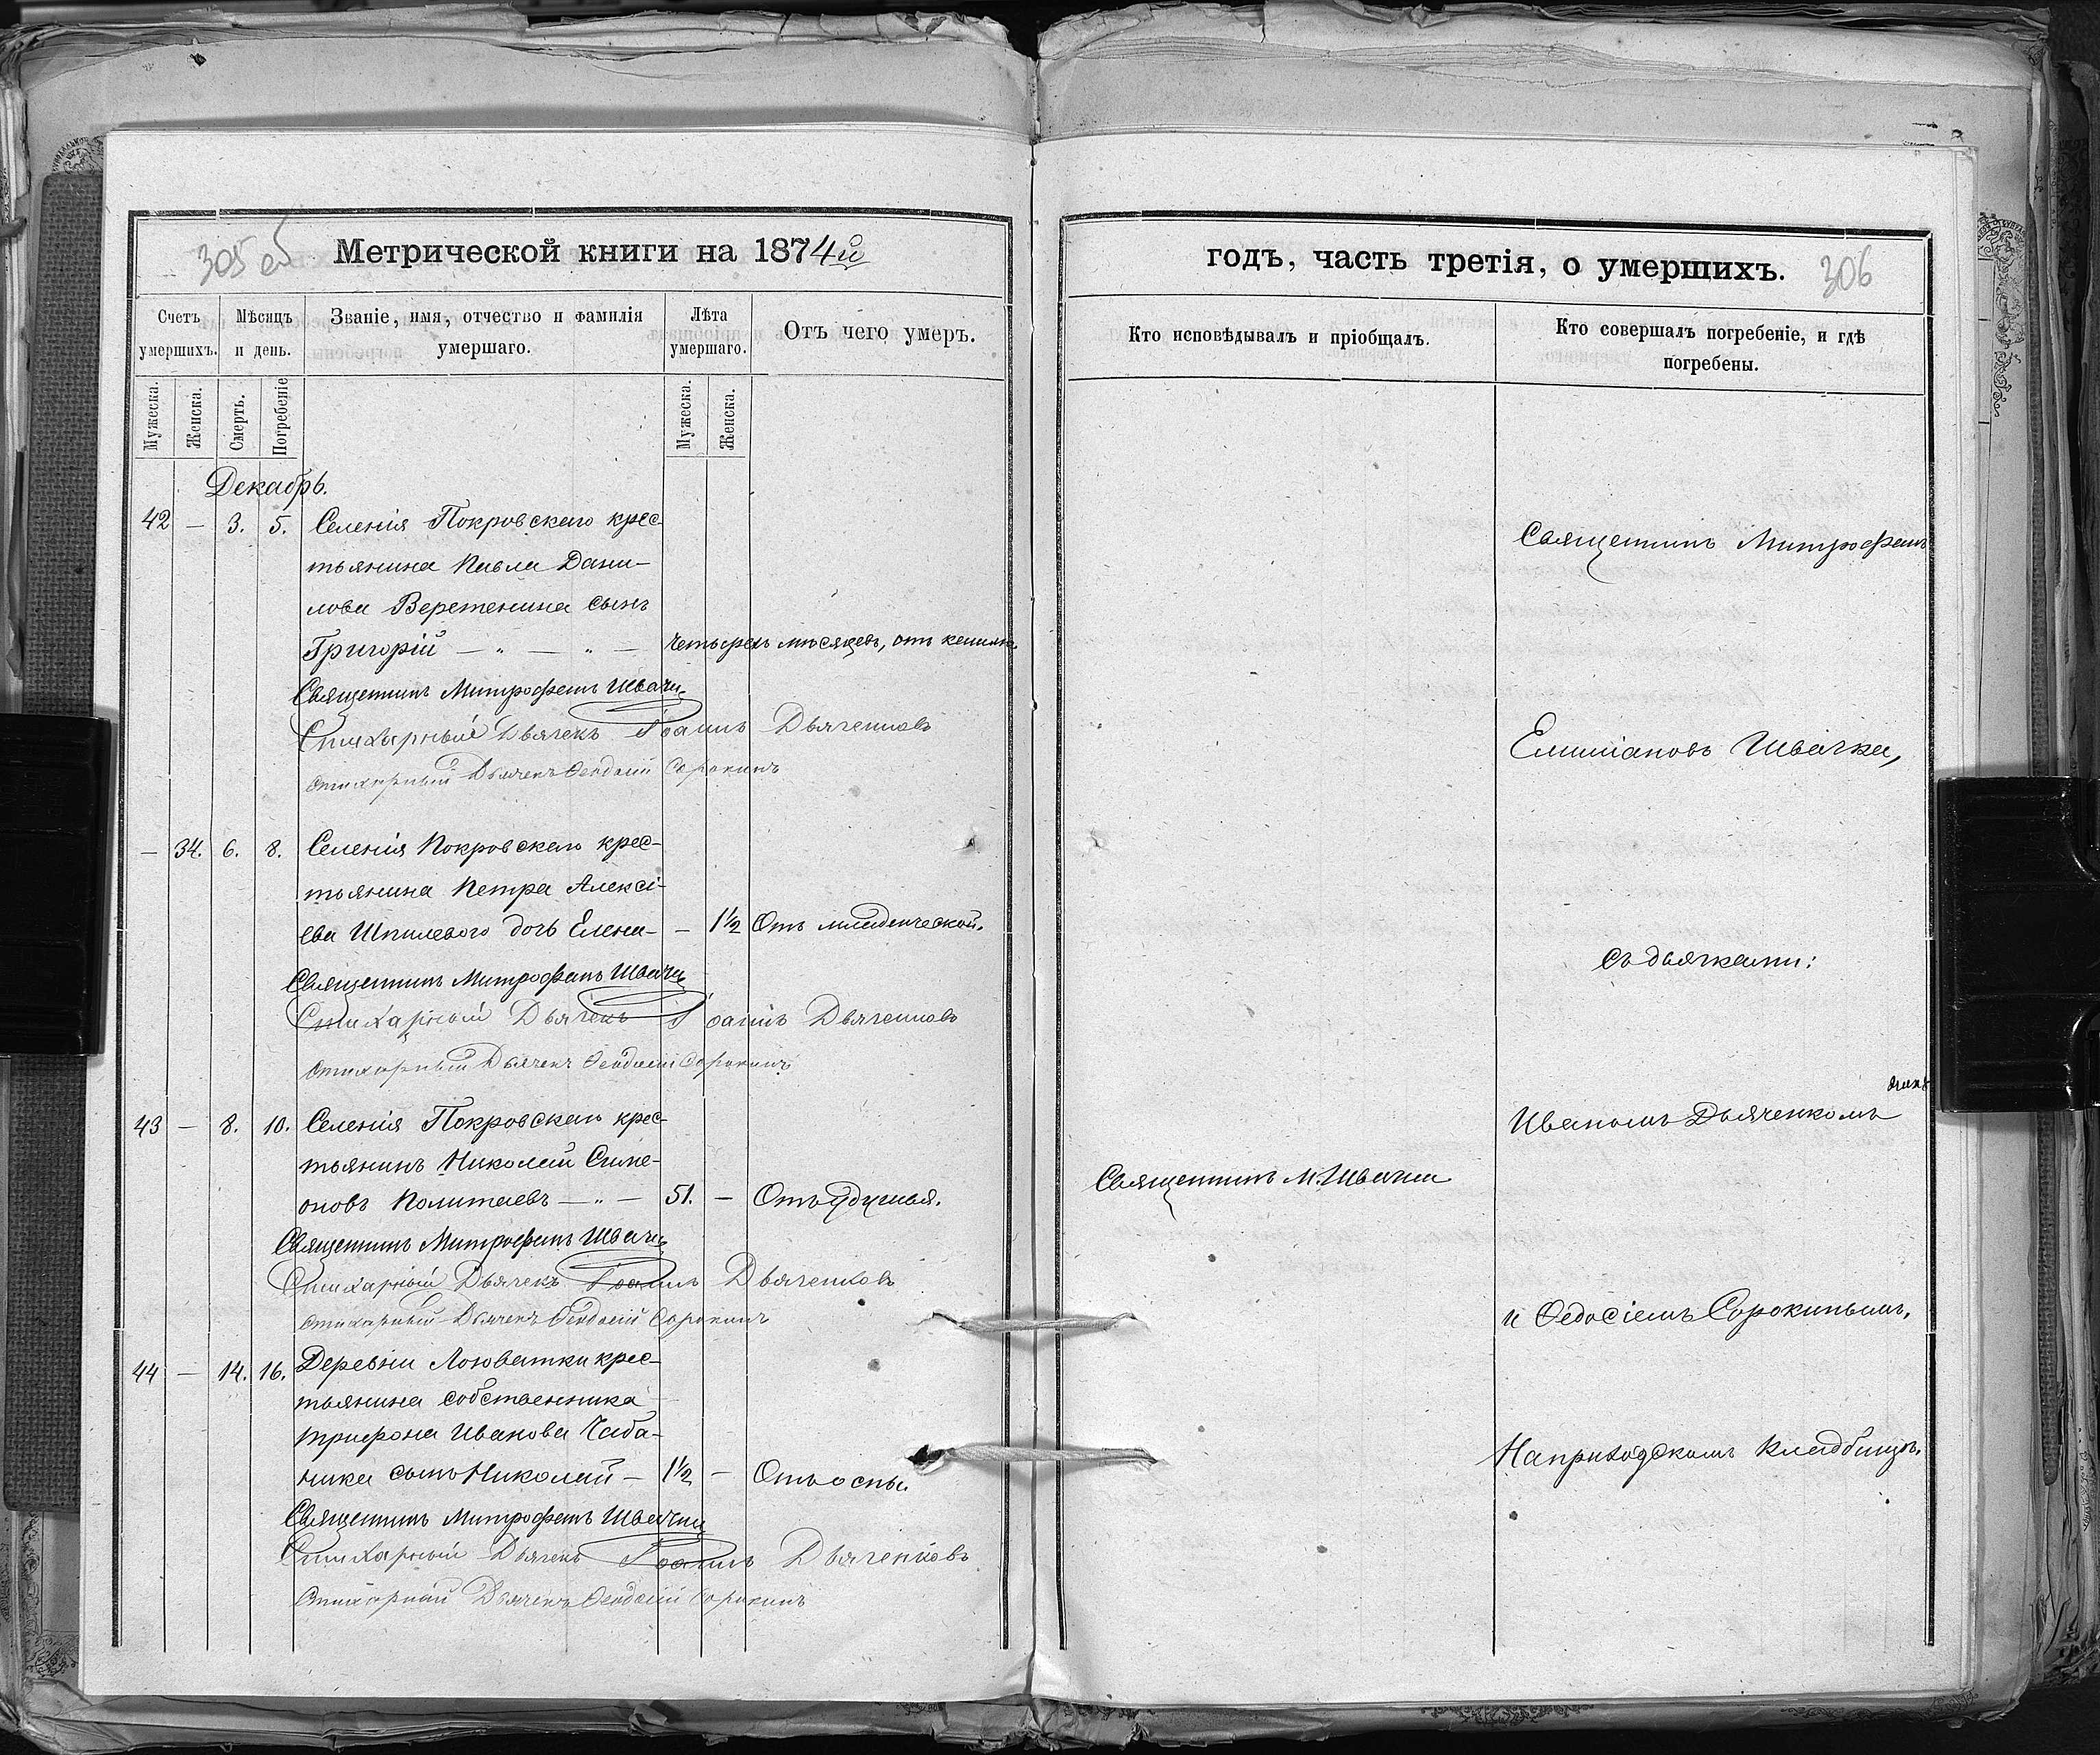 305 об
Метрической книги на 1874й
Счетъ умершихъ.
Мѣсяцъ и день.
Званіе, имя, отчество и фамилія умершаго.
Лѣта умершаго.
Отъ чего умеръ.
Мужеска.
Женска.
Смерть.
Погребеніе
Мужеска.
Женска.
Декабрь.
42 — 3. 5. Селенія Покровскаго крес-
тьянина Павла Дани-
лова Веретенина сынъ
Григорій — " — " — четырехъ мѣсяцевъ, отъ кашля.
Священникъ Митрофанъ Швачка
Стихарный Дьячекъ Іоаннъ Дьяченковъ
Стихарный Дьячекъ Ѳеодосій Сорокинъ
— 34. 6. 8. Селенія Покровскаго крес-
тьянина Петра Алексі-
ева Шпилевого дочь Елена — — 1½ Отъ младенческой.
Священникъ Митрофанъ Швачка
Стихарный Дьячекъ Іоаннъ Дьяченковъ
Стихарный Дьячекъ Ѳеодосій Сорокинъ
43 — 8. 10. Селенія Покровскаго крес-
тьянинъ Николай Симе-
оновъ Полтаевъ — " — 51. — Отъ удушья.
Священникъ Митрофанъ Швачка
Стихарный Дьячекъ Іоаннъ Дьяченковъ
Стихарный Дьячекъ Ѳеодосій Сорокинъ
44 — 14. 16. Деревни Лозоватки крес-
тьянина собственника
Трифона Иванова Чаба-
ника сынъ Николай — 1½ — Отъ оспы.
Священникъ Митрофанъ Швачка
Стихарный Дьячекъ Іоаннъ Дьяченковъ
Стихарный Дьячекъ Ѳеодосій Сорокинъ
годъ, часть третія, о умершихъ.
306
Кто исповѣдывалъ и пріобщалъ.
Кто совершалъ погребеніе, и гдѣ
погребены.
Священникъ Митрофанъ
Емиліановъ Швачка,
съ дьячками:
Иваномъ Дьяченкомъ
Священникъ М. Швачка
и Ѳедосіемъ Сорокинымъ,
На приходскомъ кладбищѣ.